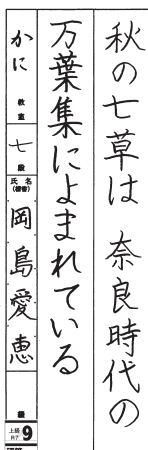 秋の七草は 奈良時代の
万葉集によまれている
かに 教室 七 段 氏名(楷書) 岡島愛恵 級
上級 R7 9